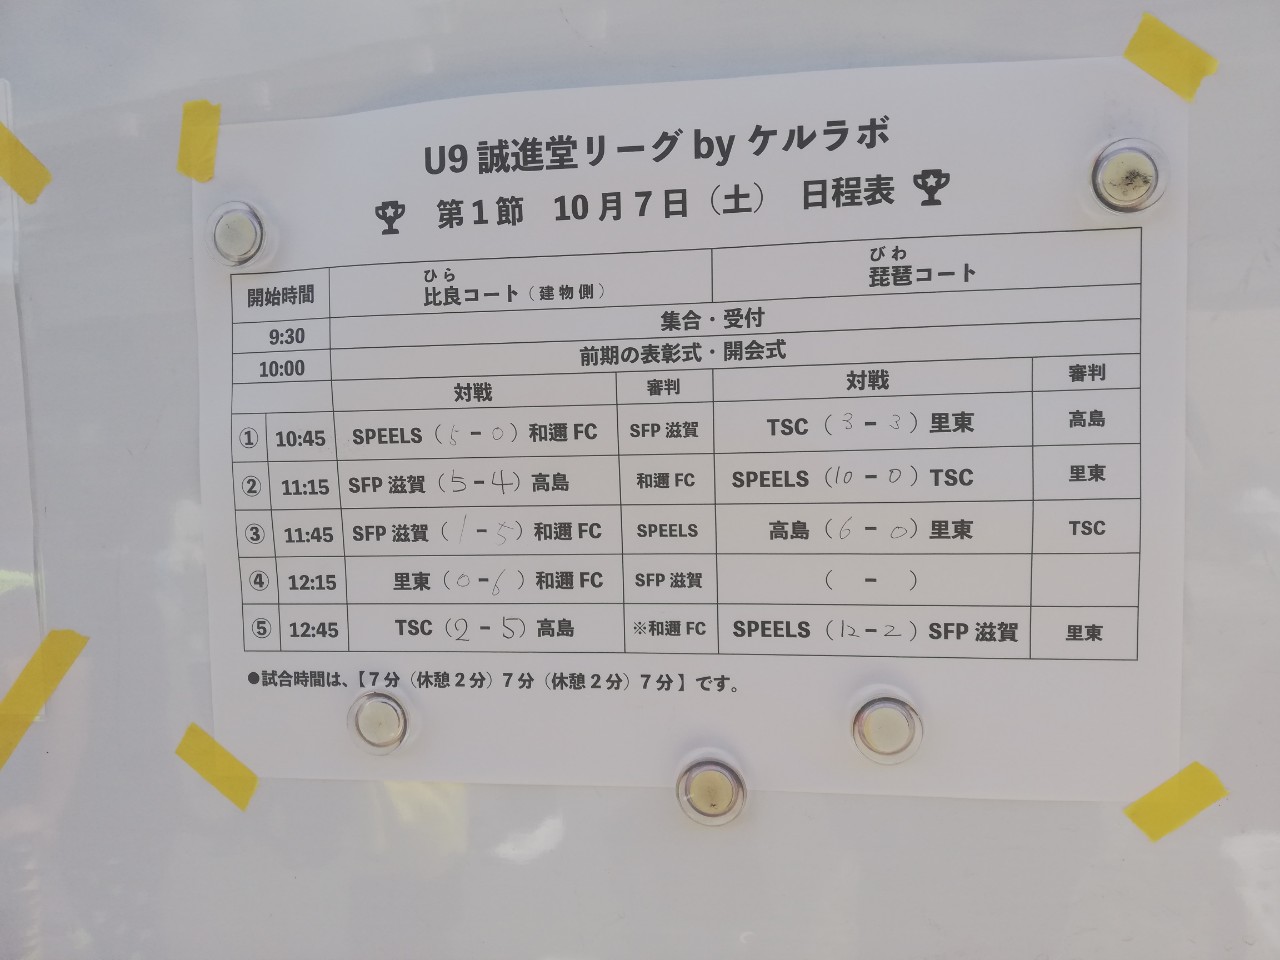 U9 誠進堂リーグ by ケルラボ
第1節 10月7日（土） 日程表
開始時間 比良コート（建物側） 琵琶コート
ひら びわ
9:30 集合・受付
10:00 前期の表彰式・開会式
対戦 審判 対戦 審判
① 10:45 SPEELS（5-0）和邇FC SFP滋賀 TSC（3-3）里東 高島
② 11:15 SFP滋賀（5-4）高島 和邇FC SPEELS（10-0）TSC 里東
③ 11:45 SFP滋賀（1-5）和邇FC SPEELS 高島（6-0）里東 TSC
④ 12:15 里東（0-6）和邇FC SFP滋賀 （ - ）
⑤ 12:45 TSC（2-5）高島 ※和邇FC SPEELS（12-2）SFP滋賀 里東
●試合時間は、【7分（休憩2分）7分（休憩2分）7分】です。